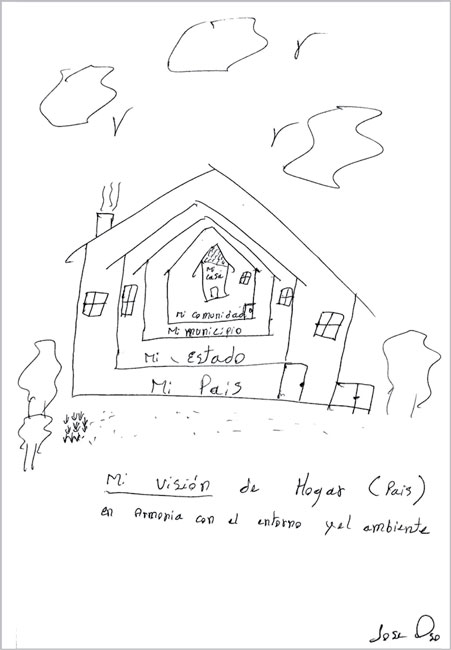 Mi
casa
Mi comunidad
Mi municipio
Mi Estado
Mi Pais
Mi visión de Hogar (Pais)
en Armonia con el entorno y el ambiente
Jose Oso